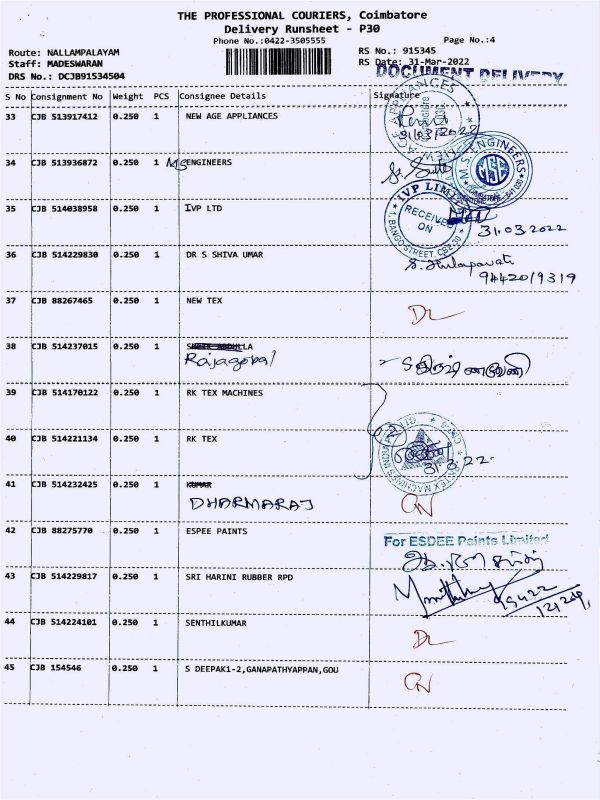 THE PROFESSIONAL COURIERS, Coimbatore
Delivery Runsheet - P30
Phone No.:0422-3505555 Page No.:4
Route: NALLAMPALAYAM RS No.: 915345
Staff: MADESWARAN RS Date: 31-Mar-2022
DRS No.: DCJB91534504 DOCUMENT DELIVERY
S No Consignment No Weight PCS Consignee Details Signature
33 CJB 513917412 0.250 1 NEW AGE APPLIANCES
31/03/2022
34 CJB 513936872 0.250 1 MS ENGINEERS
M.S. ENGINEERS
MSE
35 CJB 514038958 0.250 1 IVP LTD
IVP LIMI
RECEIVED
ON
31.03.2022
36 CJB 514229830 0.250 1 DR S SHIVA UMAR
9442019319
37 CJB 88267465 0.250 1 NEW TEX DL
38 CJB 514237015 0.250 1
Rajagopal
39 CJB 514170122 0.250 1 RK TEX MACHINES
40 CJB 514221134 0.250 1 RK TEX
31.3.22.
41 CJB 514232425 0.250 1 KUMAR
DHARMARAJ CN
42 CJB 88275770 0.250 1 ESPEE PAINTS
For ESDEE Paints Limited
43 CJB 514229817 0.250 1 SRI HARINI RUBBER RPD
44 CJB 514224101 0.250 1 SENTHILKUMAR DL
45 CJB 154546 0.250 1 S DEEPAK1-2,GANAPATHYAPPAN,GOU CN